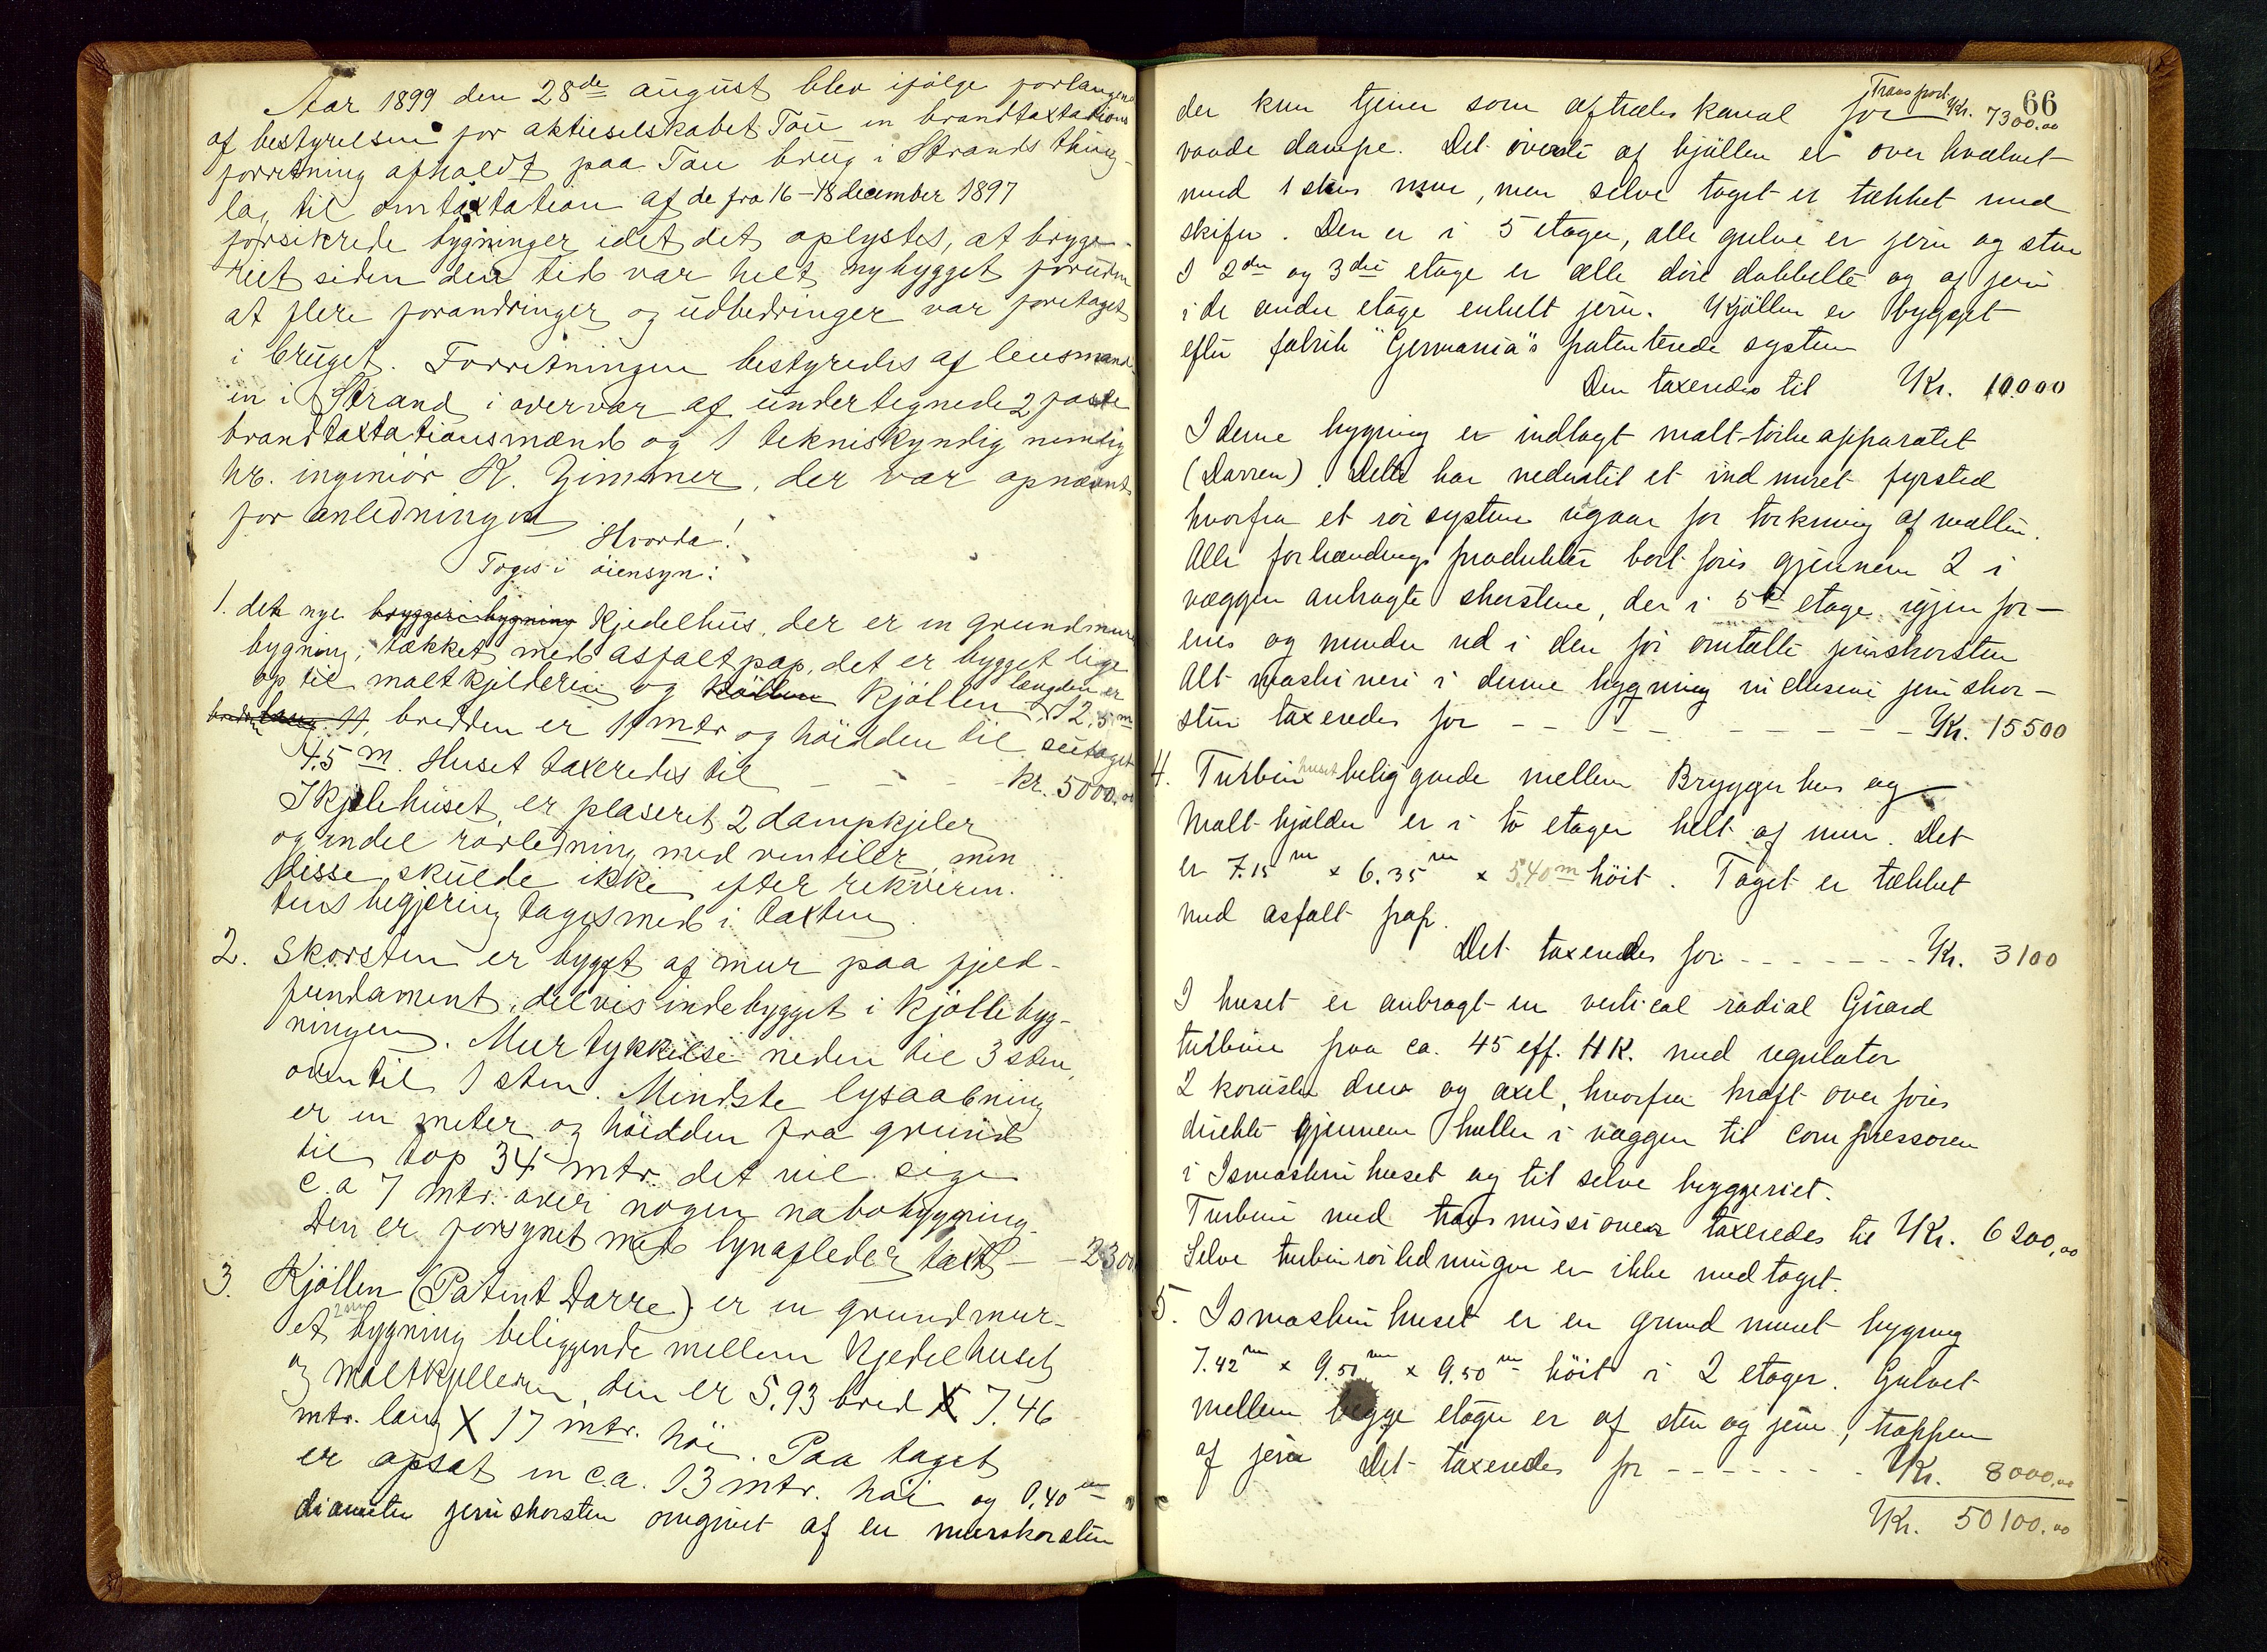 Aar 1899 den 28de august blev ifølge forlangende
af bestyrelsen for aktieselskabet Tau en brandtaxtations
forretning afholdt paa Tau brug i Strands thing-
lag til omtaxtation af de fra 16–18 december 1897
forsikrede bygninger idet det oplystes, at brygge-
riet siden den tid var helt nybygget foruden
at flere forandringer og udbedringer var foretaget
i bruget. Forretningen bestyredes af lensmand-
en i Strand i overvær af undertegnede 2 faste
brandtaxtationsmænd og 1 tekniskyndig nemlig
hr. ingeniør K. Zimmer, der var opnævnt
for anledningen
Hvorda!
Toges i øiensyn:
1. det nye bryggeribygning kjedelhus, der er en grundmuret
bygning, tækket med asfaltpap, det er bygget lige
op til maltkjelderen og kjøllen længden er 12.5 m
bredden er 11 mtr og høidden til seetaget
4.5 m. Huset taxeredes til - - - kr. 5000.00
I kjelehuset er plaseret 2 dampkjeler
og endel rørledning med ventiler, men
disse skulde ikke efter rekviren-
tens begjering tages med i taxten
2. Skorsten er bygget af mur paa fjeld-
fundament, delvis indebygget i kjøllebyg-
ningen. Murtykkelse neden til 3 sten,
oventil 1 sten. Mindste lysaabning
er en meter og høidden fra grund
til top 34 mtr. det vil sige
c.a 7 mtr. over nogen nabobygning.
Den er forsynet med lynafleder taxt - - 2300
3. Kjøllen (Patent Darre) er en grundmur-
et bygning beliggende mellem Kjedelhuset
og Maltkjelleren, den er 5,93 bred X 7.46
mtr. lang X 17 mtr. høi. Paa taget
er opsat en c.a. 13 mtr. høi og 0,40 m
diameter jernskorsten omgivet af en murskorsten
66
der kun tjener som aftræks kanal for Transport Kr. 7300.00
vaade dampe. Det øverste af kjøllen er over hvælvet
med 1 stens mur, men selve taget er tækket med
skifer. Den er i 5 etager, alle gulve er jern og sten
I 2den og 3die etage er alle døre dobbelte og af jern
i de andre etage enkelt jern. Kjøllen er bygget
efter fabrik "Germania"s patenterede system
Den taxeredes til Kr. 10.000
I denne bygning er indlagt malt-tørke apparatet
(Darren). Dette har nedentil et ind muret fyrsted
hvorfra et rør system udgaar for tørkning af malten.
Alle forbrændings produkter bort føres gjennem 2 i
væggen anbragte skorstene, der i 5te etage igjen for-
enes og munder ud i den før omtalte jernskorsten
Alt maskineri i denne bygning inclusive jernskor-
sten taxeredes for - - - - - - - - Kr. 15500
4. Turbinhuset beliggende mellem Bryggerhus og
Malt-kjælder er i to etager helt af mur. Det
er 7.15 m x 6.35 m x 5,40 m høit. Taget er tækket
med asfalt pap.
Det taxeredes for - - - - - - - Kr. 3100
I huset er anbragt en vertical radial Girard
turbine paa ca. 45 eff. HK. med regulator
2 koniske drev og axel, hvorfra kraft over føres
direkte gjennem huller i væggen til compressoren
i Ismaskin huset og til selve bryggeriet.
Turbin med transmissioner taxeredes til Kr. 6200,00
Selve turbinrørledningen er ikke medtaget.
5. Ismaskin huset er en grund muret bygning
7.42 m x 9.51 m x 9,50 m høit i 2 etager. Gulvet
mellem begge etager er af sten og jern, trappen
af jern Det taxeredes for - - - - - - Kr. 8000,00
Kr. 50100.00